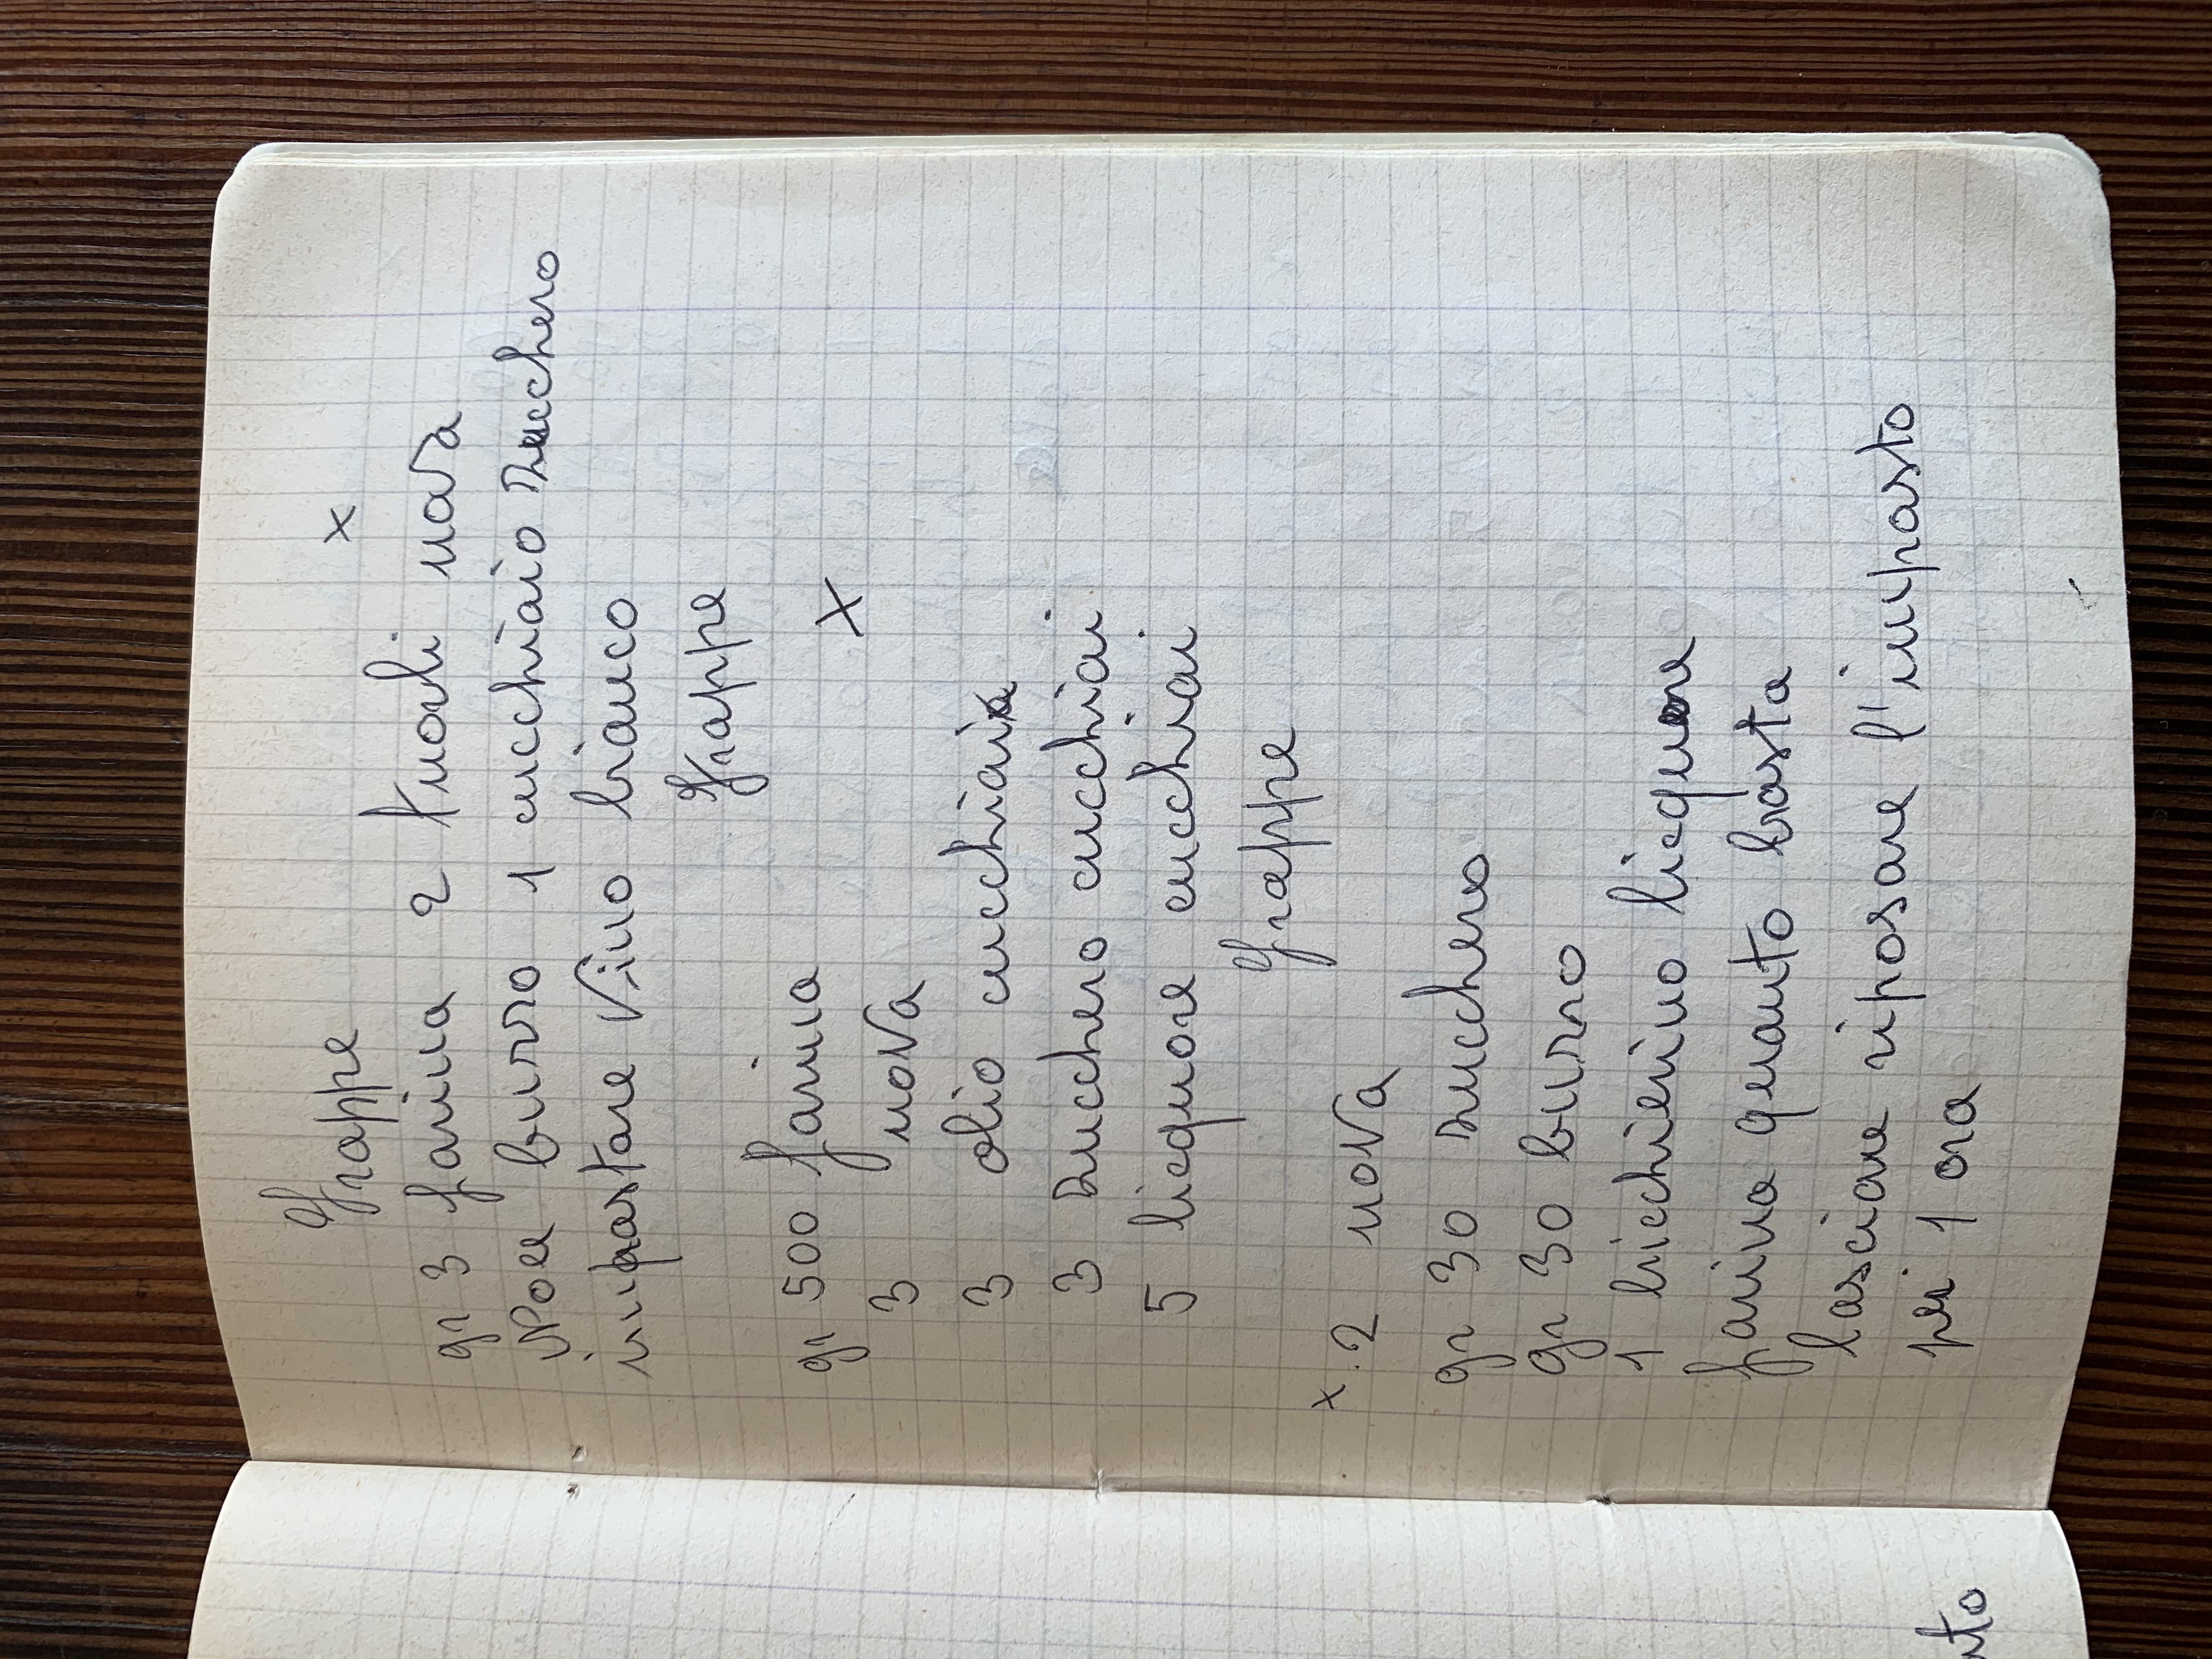 Frappe
x
gr 3 farina 2 tuorli uova
Noce burro 1 cucchiaio zucchero
impastare vino bianco
Frappe
gr 500 farina
x
3 uova
3 olio cucchiai
3 zucchero cucchiai
5 licquore cucchiai
Frappe
x 2 uova
gr 30 zucchero
gr 30 burro
1 bicchierino licquore
farina quanto basta
lasciare riposare l'impasto
per 1 ora